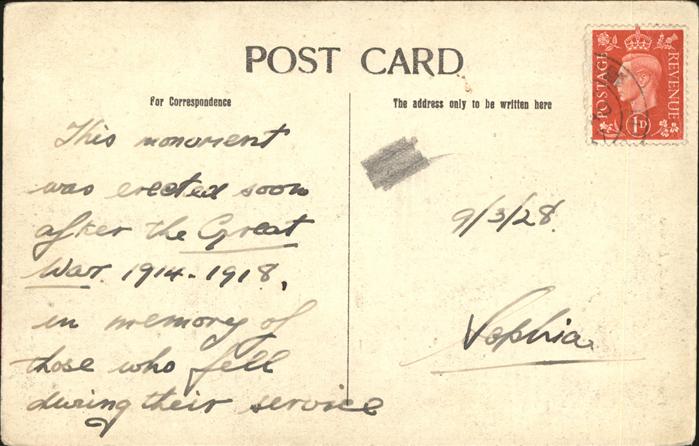 POST CARD
For Correspondence
The address only to be written here
POSTAGE
REVENUE
1D
This monument
was erected soon
after the Great
War. 1914-1918,
in memory of
those who fell
during their service
9/3/28.
Sophia